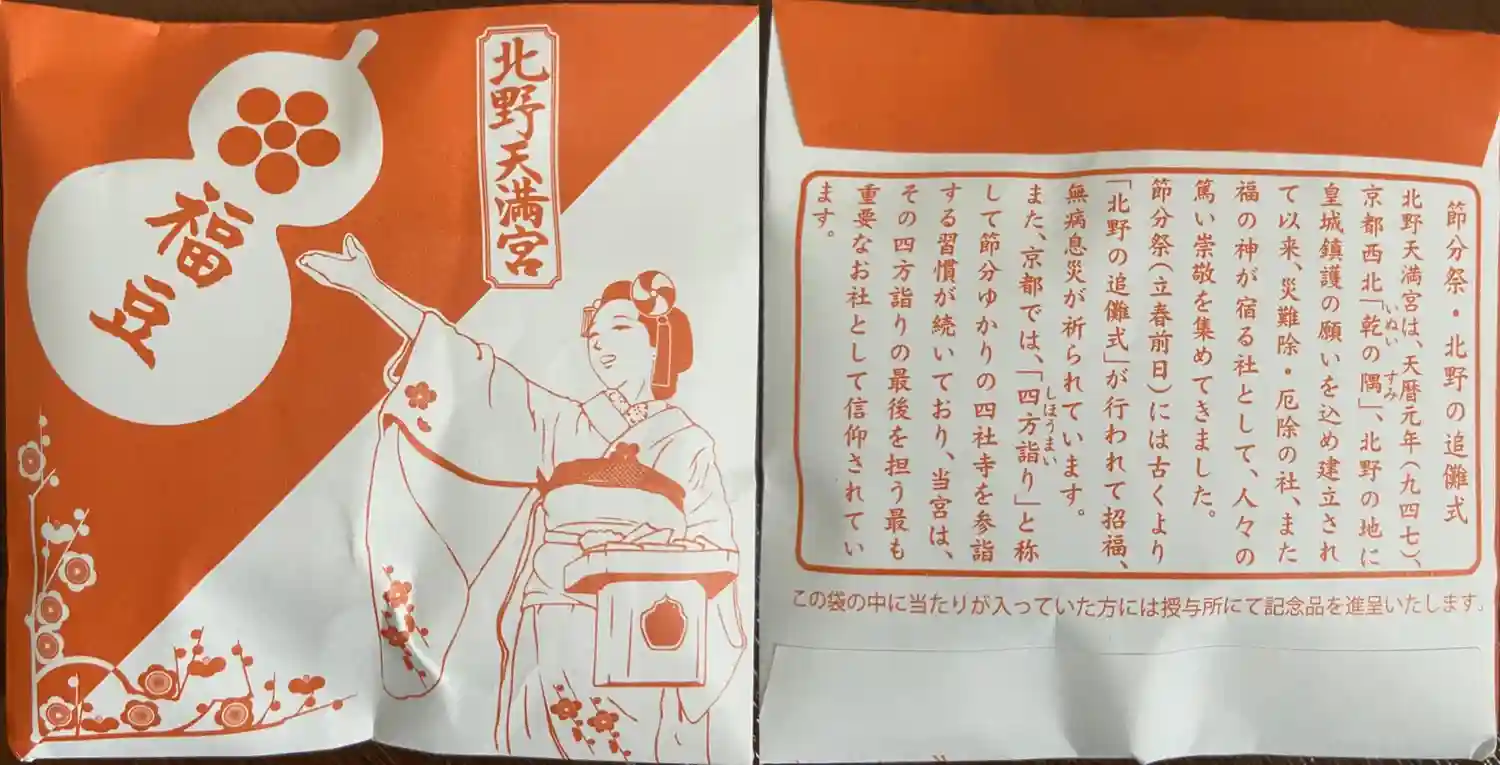 北野天満宮
福豆
節分祭・北野の追儺式
北野天満宮は、天暦元年(九四七)、
京都西北「乾の隅」、北野の地に
いぬい すみ
皇城鎮護の願いを込め建立され
て以来、災難除・厄除の社、また
福の神が宿る社として、人々の
篤い崇敬を集めてきました。
節分祭(立春前日)には古くより
「北野の追儺式」が行われて招福、
無病息災が祈られています。
また、京都では、「四方詣り」と称
しほうまい
して節分ゆかりの四社寺を参詣
する習慣が続いており、当宮は、
その四方詣りの最後を担う最も
重要なお社として信仰されてい
ます。
この袋の中に当たりが入っていた方には授与所にて記念品を進呈いたします。